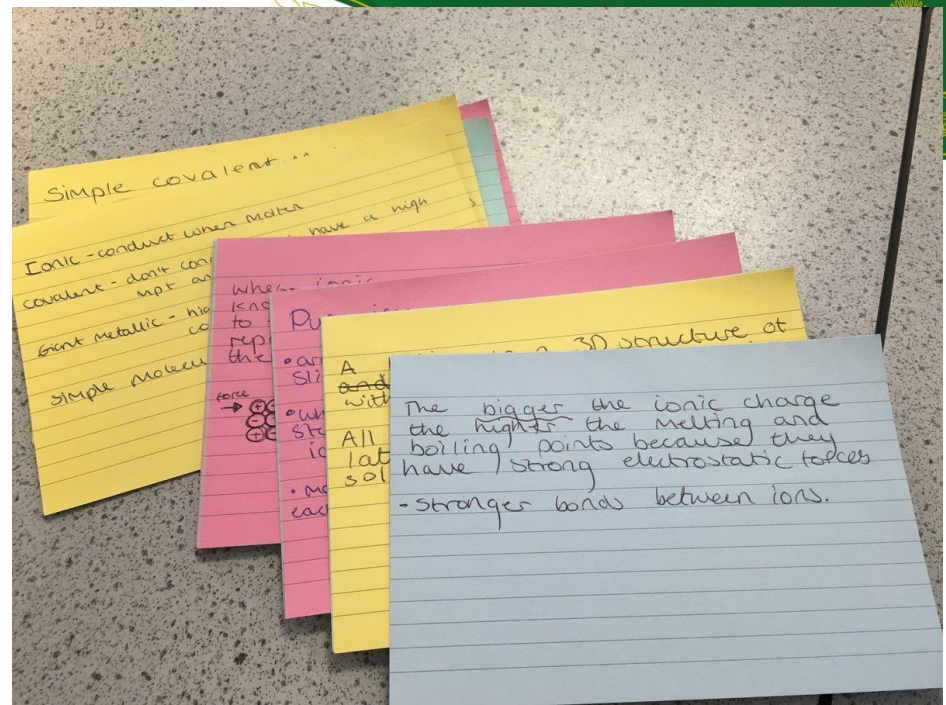 Simple covalent ...
Ionic - conduct when molten
covalent - don't con
have a high
mpt an
Giant metallic - hig
co
simple molecul
when ionic
kno
to
rep
the
force
Pu
• ar
sli
• wh
ste
io
• mo
each
A
3D structure of
and
with
All
lat
sol
The bigger the ionic charge
the higher the melting and
boiling points because they
have strong electrostatic forces
- stronger bonds between ions.